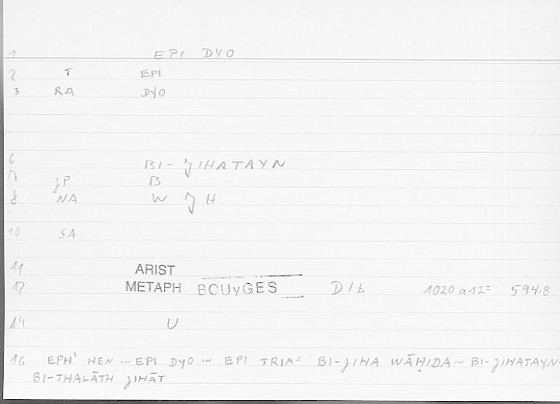 1 EPI DYO
2 T EPI
3 RA DYO
6 BI-JIHATAYN
7 JP B
8 NA W J H
10 SA
11 ARIST
12 METAPH BOUyGES D1b 1020a12= 594.8
14 U
16 EPH' HEN ... EPI DYO ... EPI TRIA= BI-JIHA WĀḤIDA ... BI-JIHATAYN..
BI-THALĀTH JIHĀT